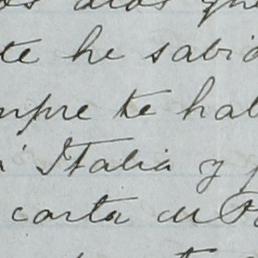 os años que
te he sabid
mpre te hal
a Italia y p
carta de Pa